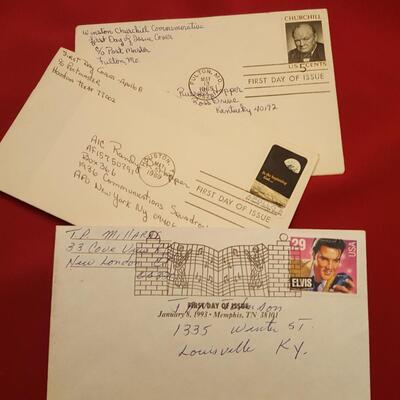 Winston Churchill Commemorative
First Day of Issue Cover
c/o Post Master
Fulton Mo.
CHURCHILL
U.S. 5 CENTS
FULTON, MO.
MAY
13
1965
FIRST DAY OF ISSUE
Ross Drive
Kentucky 40172
First Day Cover - Apollo 8
c/o Postmaster
Houston Texas 77002
HOUSTON, TX
MAY
1969
FIRST DAY OF ISSUE
A1C
Box 366
1936 Communications Squadron
APO New York NY 09406
T.P. Millard
33 Cove View
New London
29
USA
ELVIS
FIRST DAY OF ISSUE
January 8, 1993 • Memphis, TN 38101
1335 Winter St.
Louisville Ky.